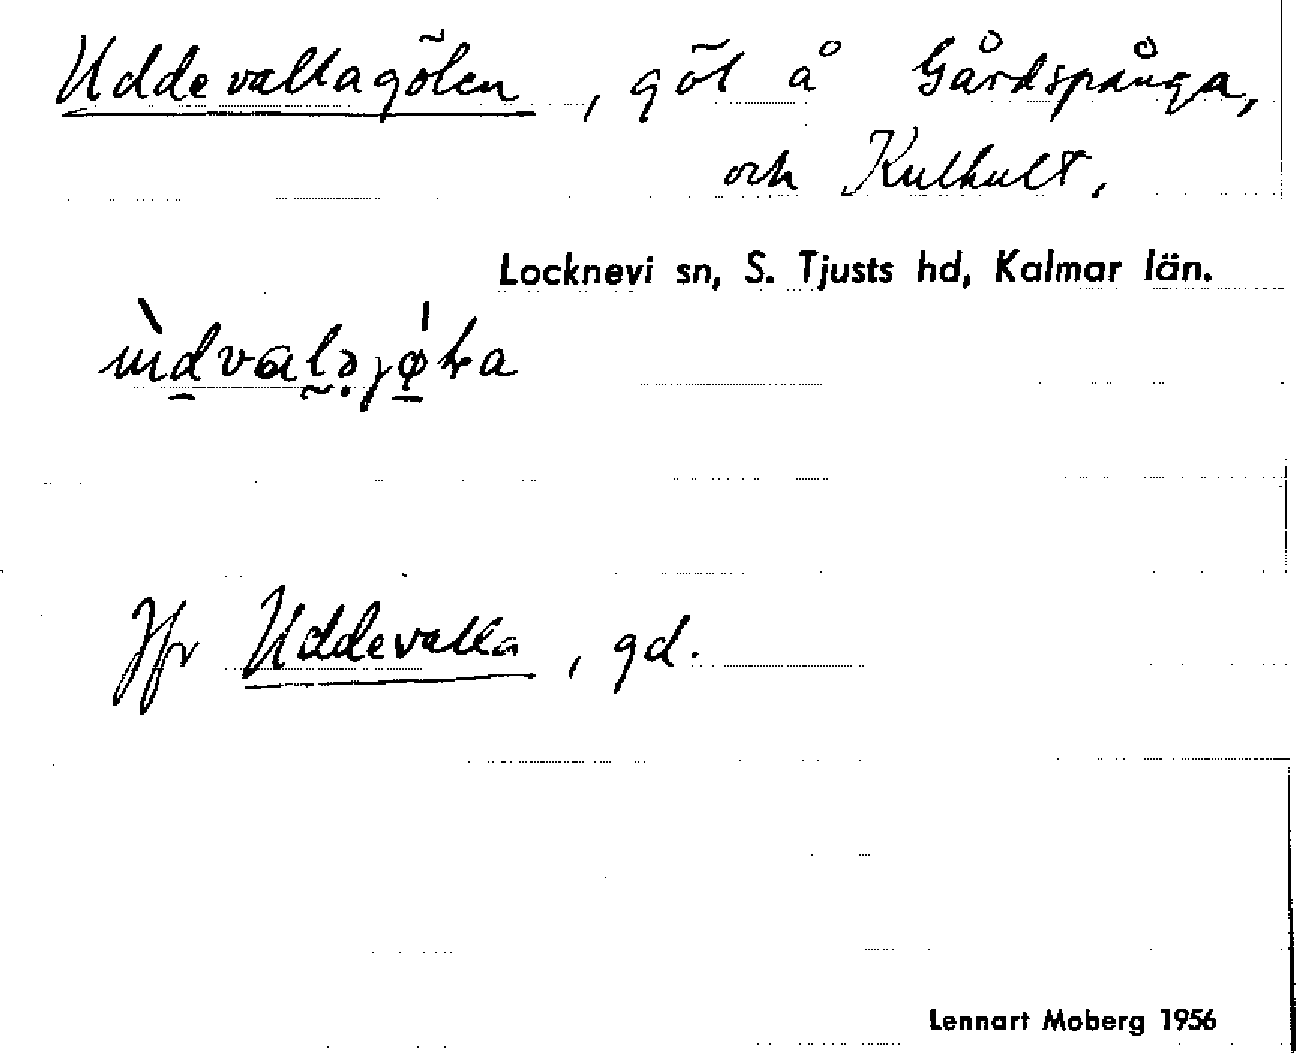 Uddevallagölen, göl å Gårdspånga,
och Kulhult.
Locknevi sn, S. Tjusts hd, Kalmar län.
Jfr Uddevalla, gd.
Lennart Moberg 1956